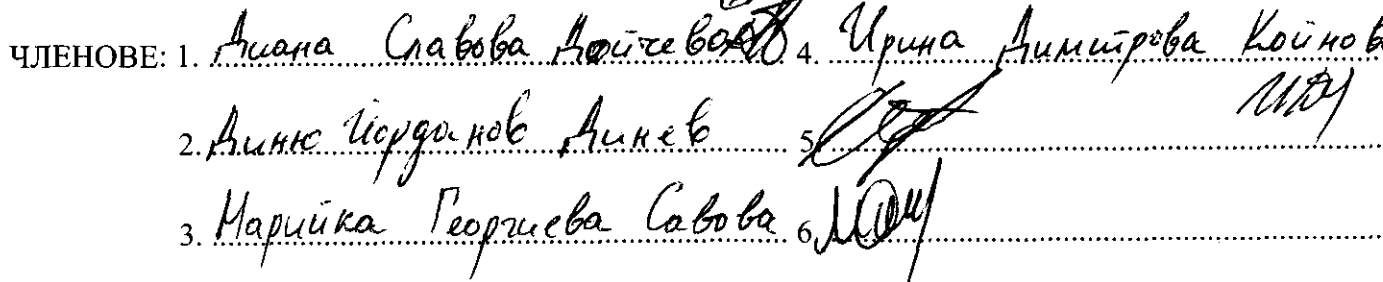 ЧЛЕНОВЕ: 1. Диана Славова Дойчева 4. Ирина Димитрова Койнова
2. Диню Йорданов Динев 5.
3. Марийка Георгиева Савова 6.